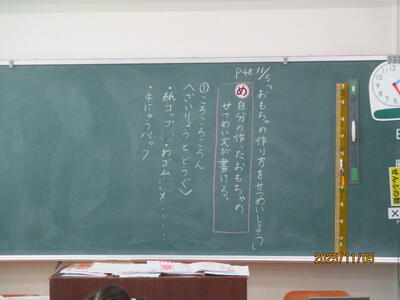 11/5
P48
「おもちゃの作り方をせつめいしよう」
め
自分の作ったおもちゃの
せつめい文が書ける。
①ころころころん
〈ざいりょうとどうぐ〉
・紙コップ
・わゴム
・牛にゅうパック
ぜんぶの数
2025/11/05